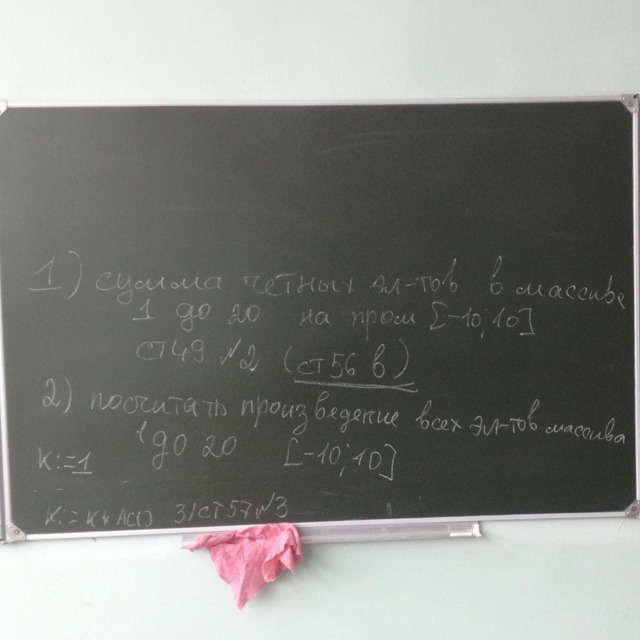 1) сумма четных эл-тов в массиве
1 до 20 на пром [-10; 10]
ст 49 №2 (ст 56 в)
2) посчитать произведение всех эл-тов массива
1 до 20 [-10; 10]
K:=1
K:= K * A[i] 3) ст 57 №3